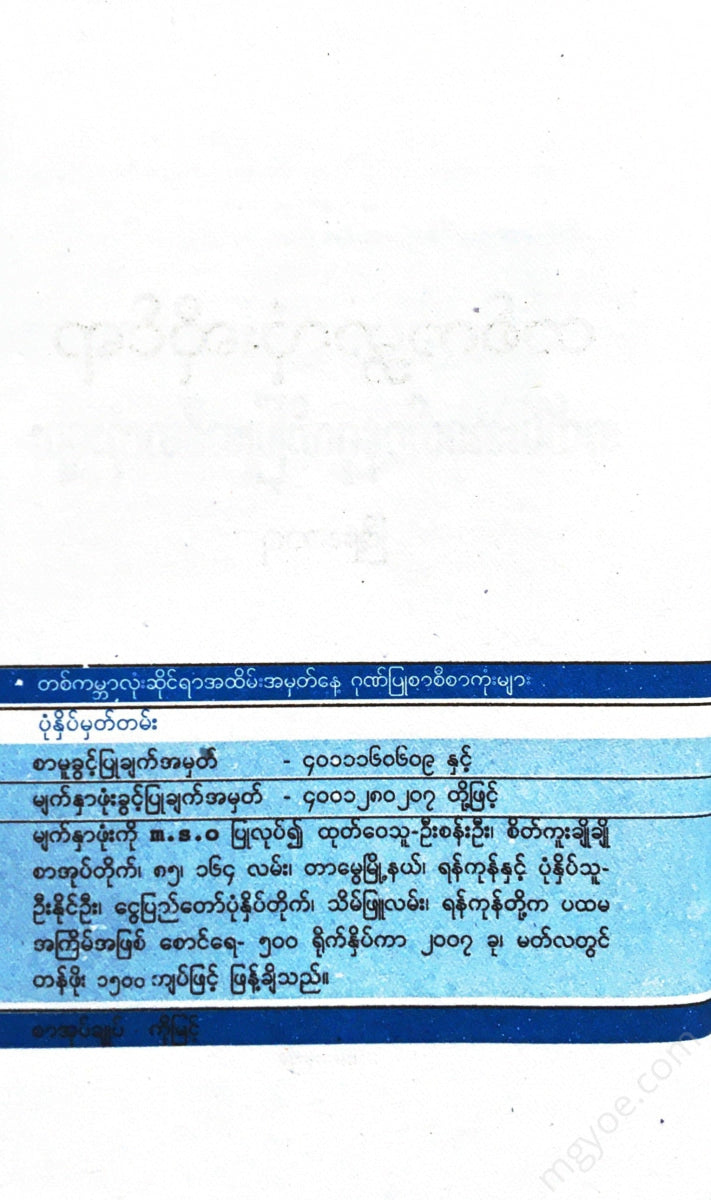 တစ်ကမ္ဘာလုံးဆိုင်ရာအထိမ်းအမှတ်နေ့ ဂုဏ်ပြုစာစီစာကုံးများ
ပုံနှိပ်မှတ်တမ်း
စာမူခွင့်ပြုချက်အမှတ် - ၄၀၁၁၁၆၀၆၀၉ နှင့်
မျက်နှာဖုံးခွင့်ပြုချက်အမှတ် - ၄၀၀၁၂၈၀၂၀၇ တို့ဖြင့်
မျက်နှာဖုံးကို m.s.o ပြုလုပ်၍ ထုတ်ဝေသူ-ဦးစန်းဦး၊ စိတ်ကူးချိုချို
စာအုပ်တိုက်၊ ၈၅၊ ၁၆၄ လမ်း၊ တာမွေမြို့နယ်၊ ရန်ကုန်နှင့် ပုံနှိပ်သူ-
ဦးနိုင်ဦး၊ ငွေပြည်တော်ပုံနှိပ်တိုက်၊ သိမ်ဖြူလမ်း၊ ရန်ကုန်တို့က ပထမ
အကြိမ်အဖြစ် စောင်ရေ- ၅၀၀ ရိုက်နှိပ်ကာ ၂၀၀၇ ခု၊ မတ်လတွင်
တန်ဖိုး ၁၅၀၀ ကျပ်ဖြင့် ဖြန့်ချိသည်။
စာအုပ်ချုပ် ကိုမြင့်
mgyoe.com